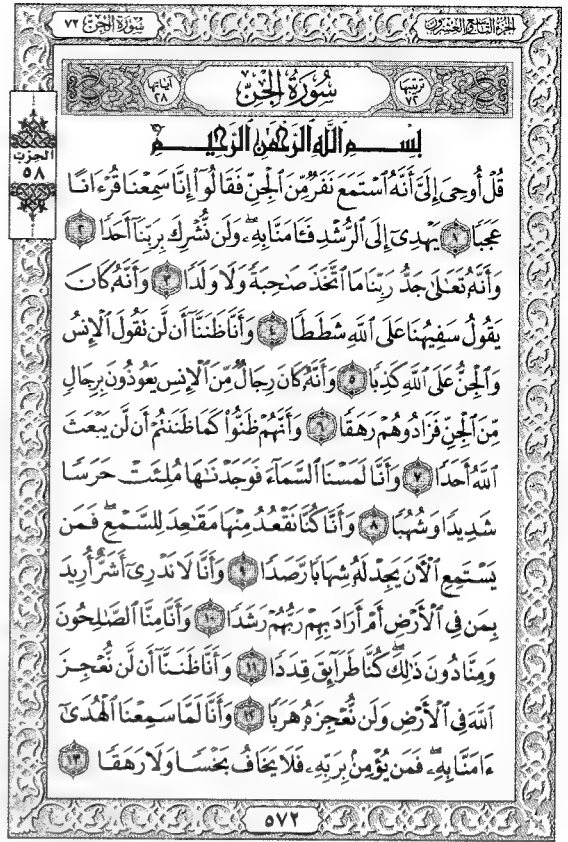 الجزء التاسع والعشرون
سورة الجن ٧٢
ترتيبها ٧٢
سُورَةُ الجِنِّ
آياتها ٢٨
الحزب ٥٨
بِسْمِ اللَّهِ الرَّحْمَٰنِ الرَّحِيمِ
قُلْ أُوحِىَ إِلَىَّ أَنَّهُ ٱسْتَمَعَ نَفَرٌ مِّنَ ٱلْجِنِّ فَقَالُوٓا۟ إِنَّا سَمِعْنَا قُرْءَانًا
عَجَبًا ١ يَهْدِىٓ إِلَى ٱلرُّشْدِ فَـَٔامَنَّا بِهِۦ ۖ وَلَن نُّشْرِكَ بِرَبِّنَآ أَحَدًا ٢
وَأَنَّهُۥ تَعَٰلَىٰ جَدُّ رَبِّنَا مَا ٱتَّخَذَ صَٰحِبَةً وَلَا وَلَدًا ٣ وَأَنَّهُۥ كَانَ
يَقُولُ سَفِيهُنَا عَلَى ٱللَّهِ شَطَطًا ٤ وَأَنَّا ظَنَنَّآ أَن لَّن تَقُولَ ٱلْإِنسُ
وَٱلْجِنُّ عَلَى ٱللَّهِ كَذِبًا ٥ وَأَنَّهُۥ كَانَ رِجَالٌ مِّنَ ٱلْإِنسِ يَعُوذُونَ بِرِجَالٍ
مِّنَ ٱلْجِنِّ فَزَادُوهُمْ رَهَقًا ٦ وَأَنَّهُمْ ظَنُّوا۟ كَمَا ظَنَنتُمْ أَن لَّن يَبْعَثَ
ٱللَّهُ أَحَدًا ٧ وَأَنَّا لَمَسْنَا ٱلسَّمَآءَ فَوَجَدْنَٰهَا مُلِئَتْ حَرَسًا
شَدِيدًا وَشُهُبًا ٨ وَأَنَّا كُنَّا نَقْعُدُ مِنْهَا مَقَٰعِدَ لِلسَّمْعِ ۖ فَمَن
يَسْتَمِعِ ٱلْـَٔانَ يَجِدْ لَهُۥ شِهَابًا رَّصَدًا ٩ وَأَنَّا لَا نَدْرِىٓ أَشَرٌّ أُرِيدَ
بِمَن فِى ٱلْأَرْضِ أَمْ أَرَادَ بِهِمْ رَبُّهُمْ رَشَدًا ١٠ وَأَنَّا مِنَّا ٱلصَّٰلِحُونَ
وَمِنَّا دُونَ ذَٰلِكَ ۖ كُنَّا طَرَآئِقَ قِدَدًا ١١ وَأَنَّا ظَنَنَّآ أَن لَّن نُّعْجِزَ
ٱللَّهَ فِى ٱلْأَرْضِ وَلَن نُّعْجِزَهُۥ هَرَبًا ١٢ وَأَنَّا لَمَّا سَمِعْنَا ٱلْهُدَىٰٓ
ءَامَنَّا بِهِۦ ۖ فَمَن يُؤْمِنۢ بِرَبِّهِۦ فَلَا يَخَافُ بَخْسًا وَلَا رَهَقًا ١٣
٥٧٢